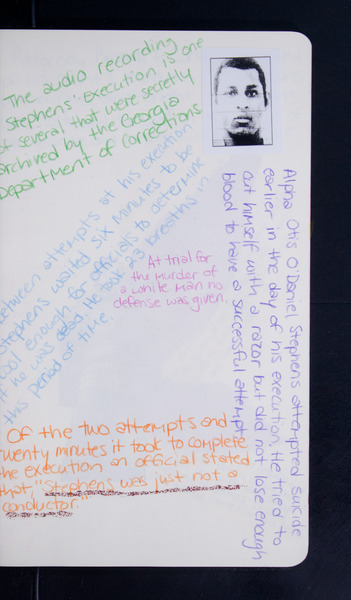 The audio recording
Stephens' Execution is one
of several that were secretly
archived by the Georgia
Department of Corrections
Between attempts at his execution
Stephens waited six minutes to be
cool enough for officials to determine
if he was dead. He took 23 breaths in
this period of time.
At trial for
the murder of
a white man no
defense was given.
Alpha Otis O'Daniel Stephens attempted suicide
earlier in the day of his execution. He tried to
cut himself with a razor but did not lose enough
blood to have a successful attempt
Of the two attempts and
twenty minutes it took to complete
the execution an official stated
that, "Stephens was just not a
conductor."